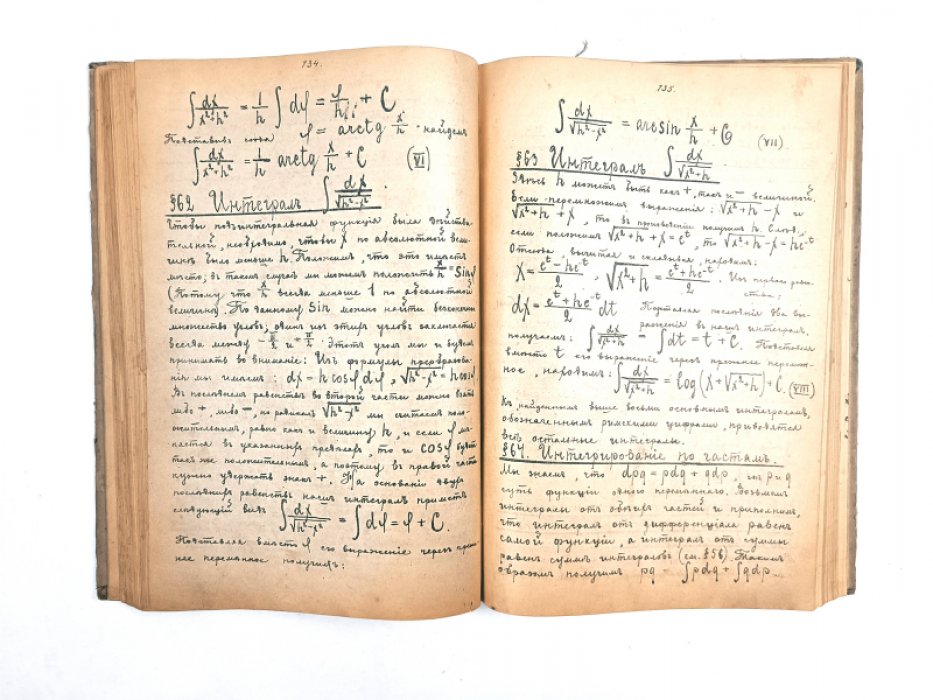 134.
∫ dx/(x²+h²) = 1/h ∫ dφ = φ/h + C
Подставивъ сюда φ = arctg x/h найдемъ
∫ dx/(x²+h²) = 1/h arctg x/h + C (VI)
§62 Интегралъ ∫ dx/√(h²-x²)
Чтобы подъинтегральная функція была дѣйстви-
тельной, необходимо, чтобы x по абсолютной вели-
чинѣ было меньше h. Положимъ, что это имѣетъ
мѣсто; въ такомъ случаѣ мы можемъ положить x/h = Sin φ
(Потому что x/h всегда меньше 1 по абсолютной
величинѣ). По данному Sin можно найти безконечное
множество угловъ; одинъ изъ этихъ угловъ заключается
всегда между -π/2 и +π/2. Этотъ уголъ мы и будемъ
принимать во вниманіе: Изъ формулы преобразова-
нія мы имѣемъ: dx = h cosφ dφ, √(h²-x²) = h cosφ.
Въ послѣднемъ равенствѣ во второй части можно взять
либо +, либо -, но радикалъ √(h²-x²) мы считаемъ поло-
жительнымъ, равно какъ и величину h, и если φ
въ указанныхъ предѣлахъ, то и cosφ будетъ
также положительнымъ, а поэтому въ правой части
нужно удержать знакъ +. На основаніи двухъ
послѣднихъ равенствъ нашъ интегралъ приметъ
слѣдующій видъ ∫ dx/√(h²-x²) = ∫ dφ = φ + C.
Подставляя вмѣсто φ его выраженіе черезъ преж-
нее переменное получимъ:
135.
∫ dx/√(h²-x²) = arcsin x/h + C (VII)
§63 Интегралъ ∫ dx/√(x²+h)
Здѣсь h можетъ быть какъ +, такъ и - величиной.
Если перемножимъ выраженія: √(x²+h) - x и
√(x²+h) + x, то въ произведеніи получимъ h. Слѣдов.,
если положимъ √(x²+h) + x = eᵗ, то √(x²+h) - x = he⁻ᵗ
Отсюда, вычитая и складывая, находимъ:
x = (eᵗ - he⁻ᵗ)/2, √(x²+h) = (eᵗ + he⁻ᵗ)/2. Изъ перваго равен-
ства:
dx = (eᵗ + he⁻ᵗ)/2 dt Подставляя послѣднія два вы-
раженія въ нашъ интегралъ,
получаемъ: ∫ dx/√(x²+h) = ∫ dt = t + C. Подставляя
вмѣсто t его выраженіе черезъ прежнее перемен-
ное, находимъ: ∫ dx/√(x²+h) = log(x + √(x²+h)) + C. (VIII)
Къ найденнымъ выше восьми основнымъ интеграламъ,
обозначеннымъ римскими цифрами, приводятся
всѣ остальные интегралы.
§64. Интегрированіе по частямъ.
Мы знаемъ, что dpq = pdq + qdp, гдѣ p и q
суть функціи одного переменнаго. Возьмемъ
интегралы отъ обѣихъ частей и припомнимъ,
что интегралъ отъ дифференціала равенъ
самой функціи, а интегралъ отъ суммы
равенъ суммѣ интеграловъ (см. §56). Такимъ
образомъ получимъ pq = ∫pdq + ∫qdp